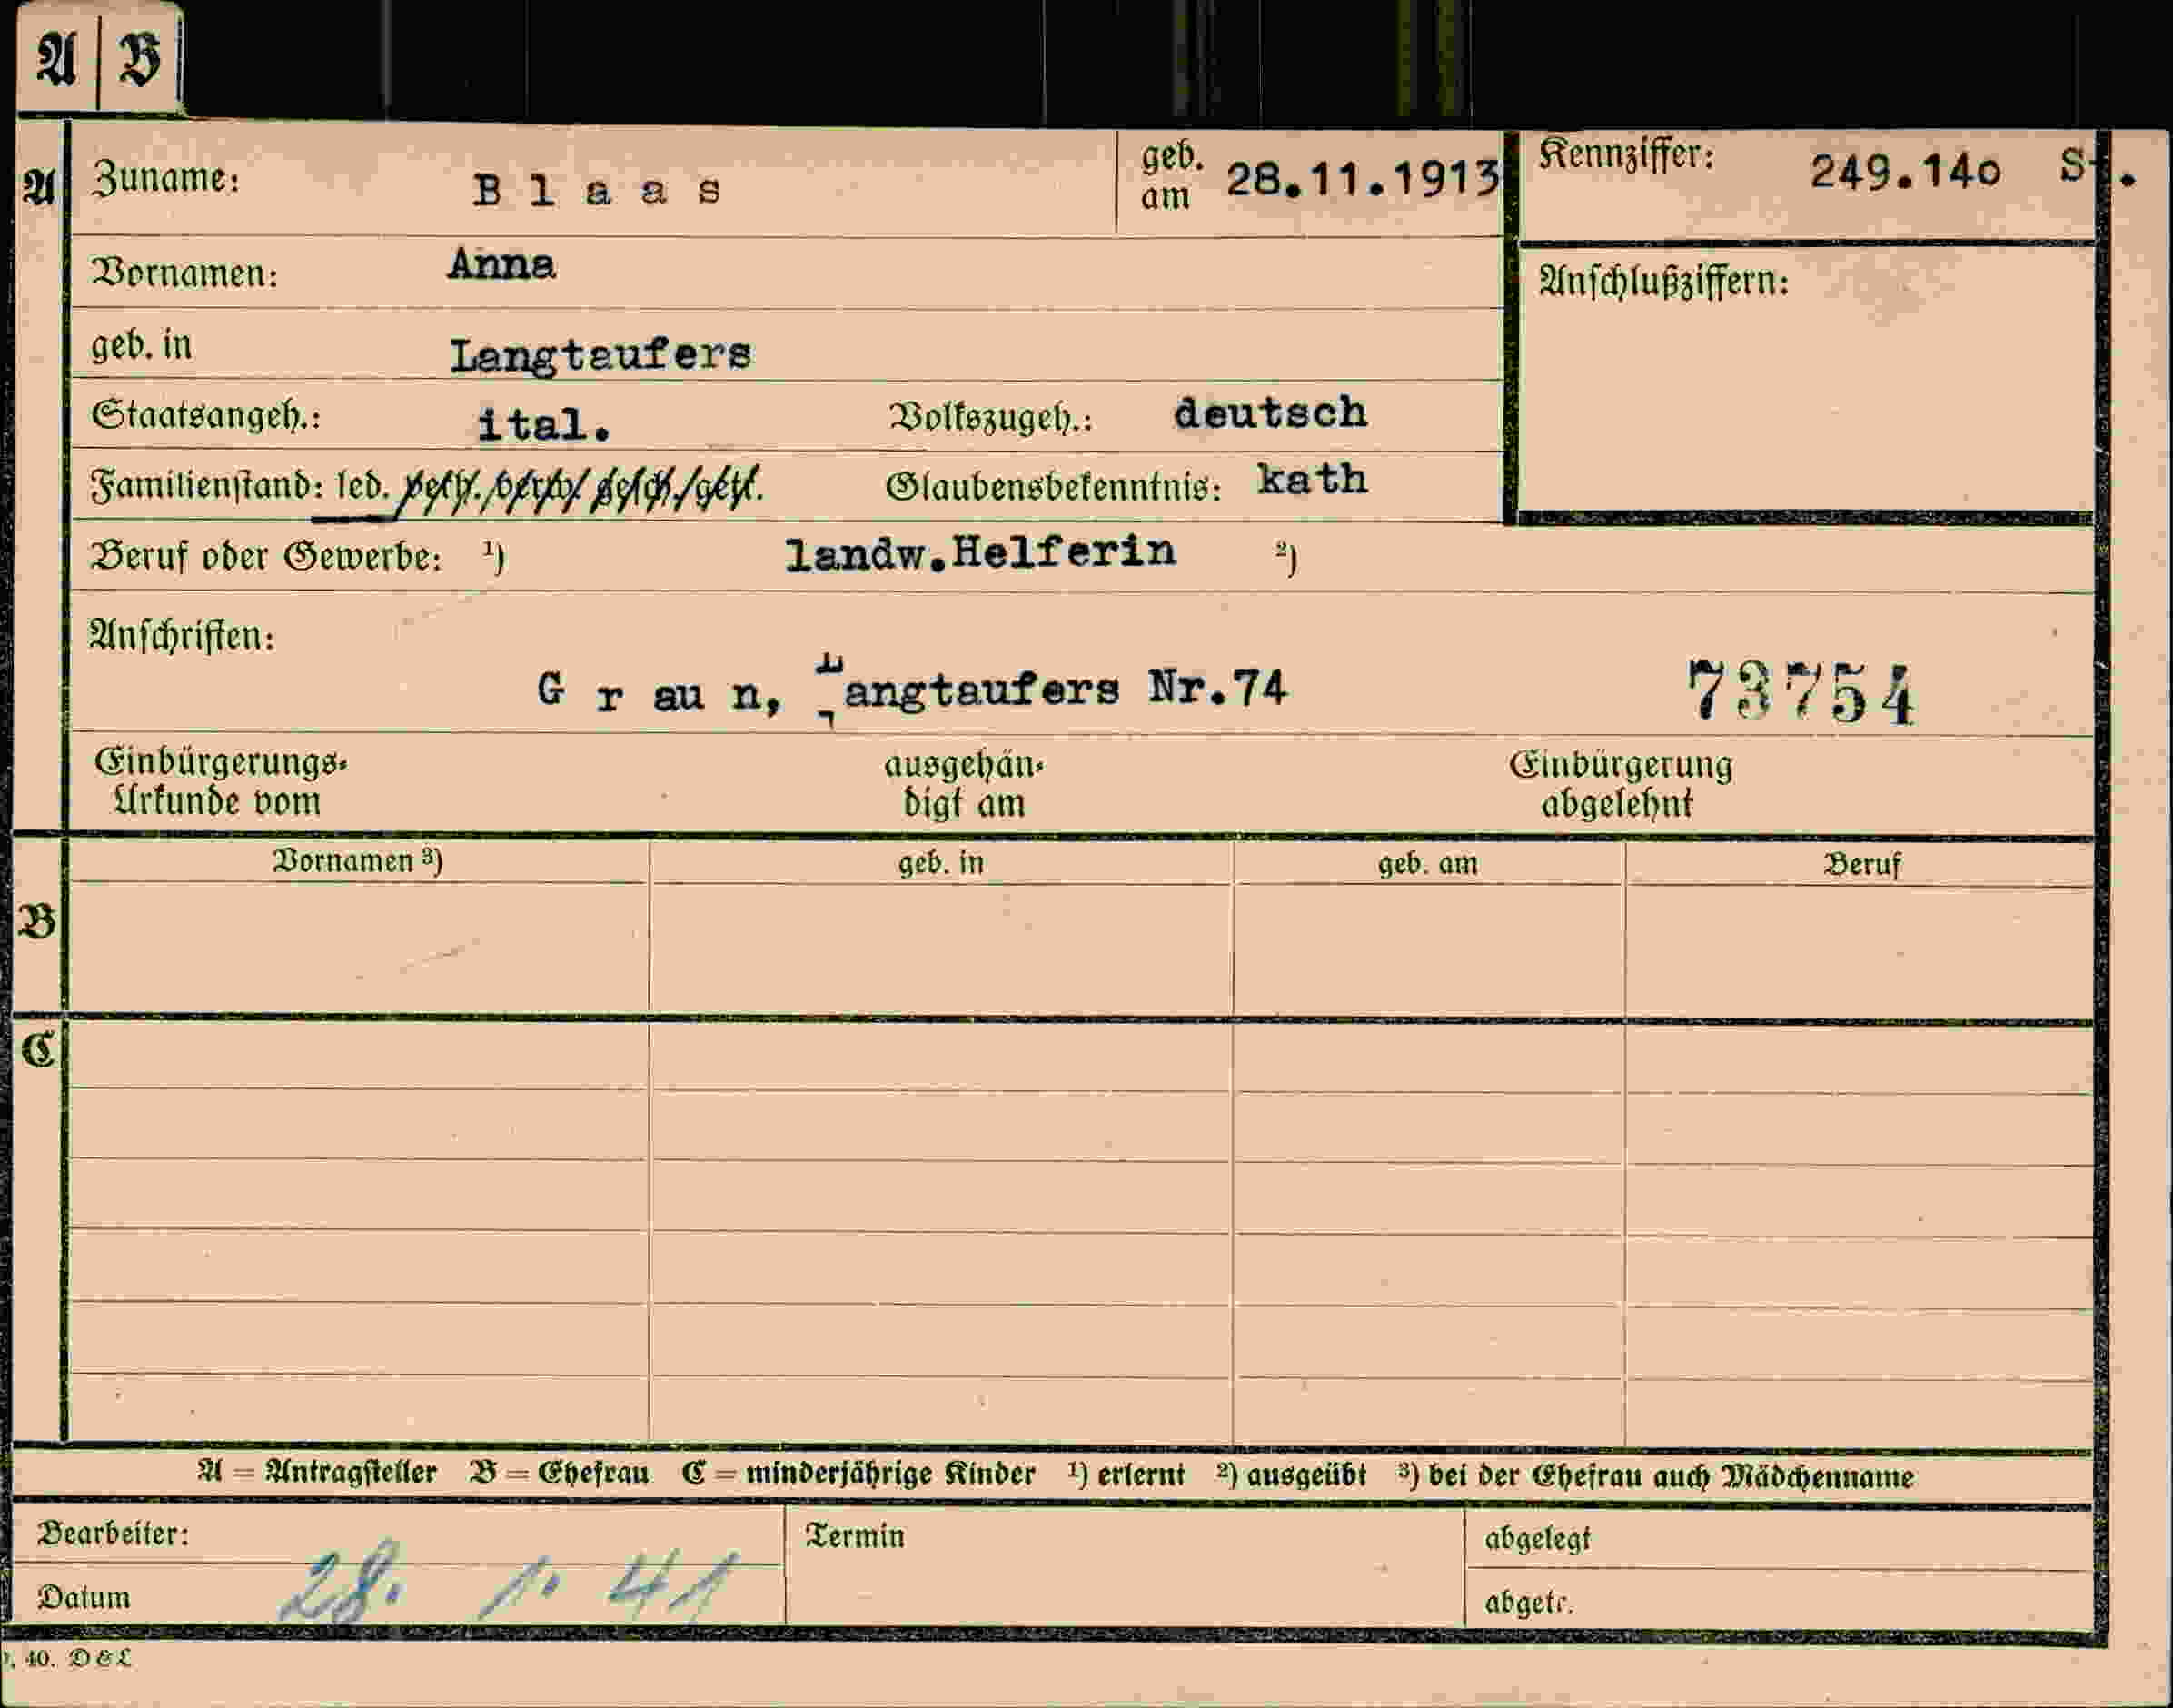 A B
A Zuname: Blaas geb. am 28.11.1913 Kennziffer: 249.140 St.
Vornamen: Anna Anschlußziffern:
geb. in Langtaufers
Staatsangeh.: ital. Volkszugeh.: deutsch
Familienstand: led. verh. verw. gesch. getr. Glaubensbekenntnis: kath
Beruf oder Gewerbe: ¹) landw.Helferin ²)
Anschriften:
Graun, Langtaufers Nr.74 73754
Einbürgerungs- Urkunde vom ausgehän- digt am Einbürgerung abgelehnt
Vornamen ³) geb. in geb. am Beruf
B
C
A = Antragsteller B = Ehefrau C = minderjährige Kinder ¹) erlernt ²) ausgeübt ³) bei der Ehefrau auch Mädchenname
Bearbeiter: Termin abgelegt
Datum 28. 1. 41 abgetr.
40. D & L